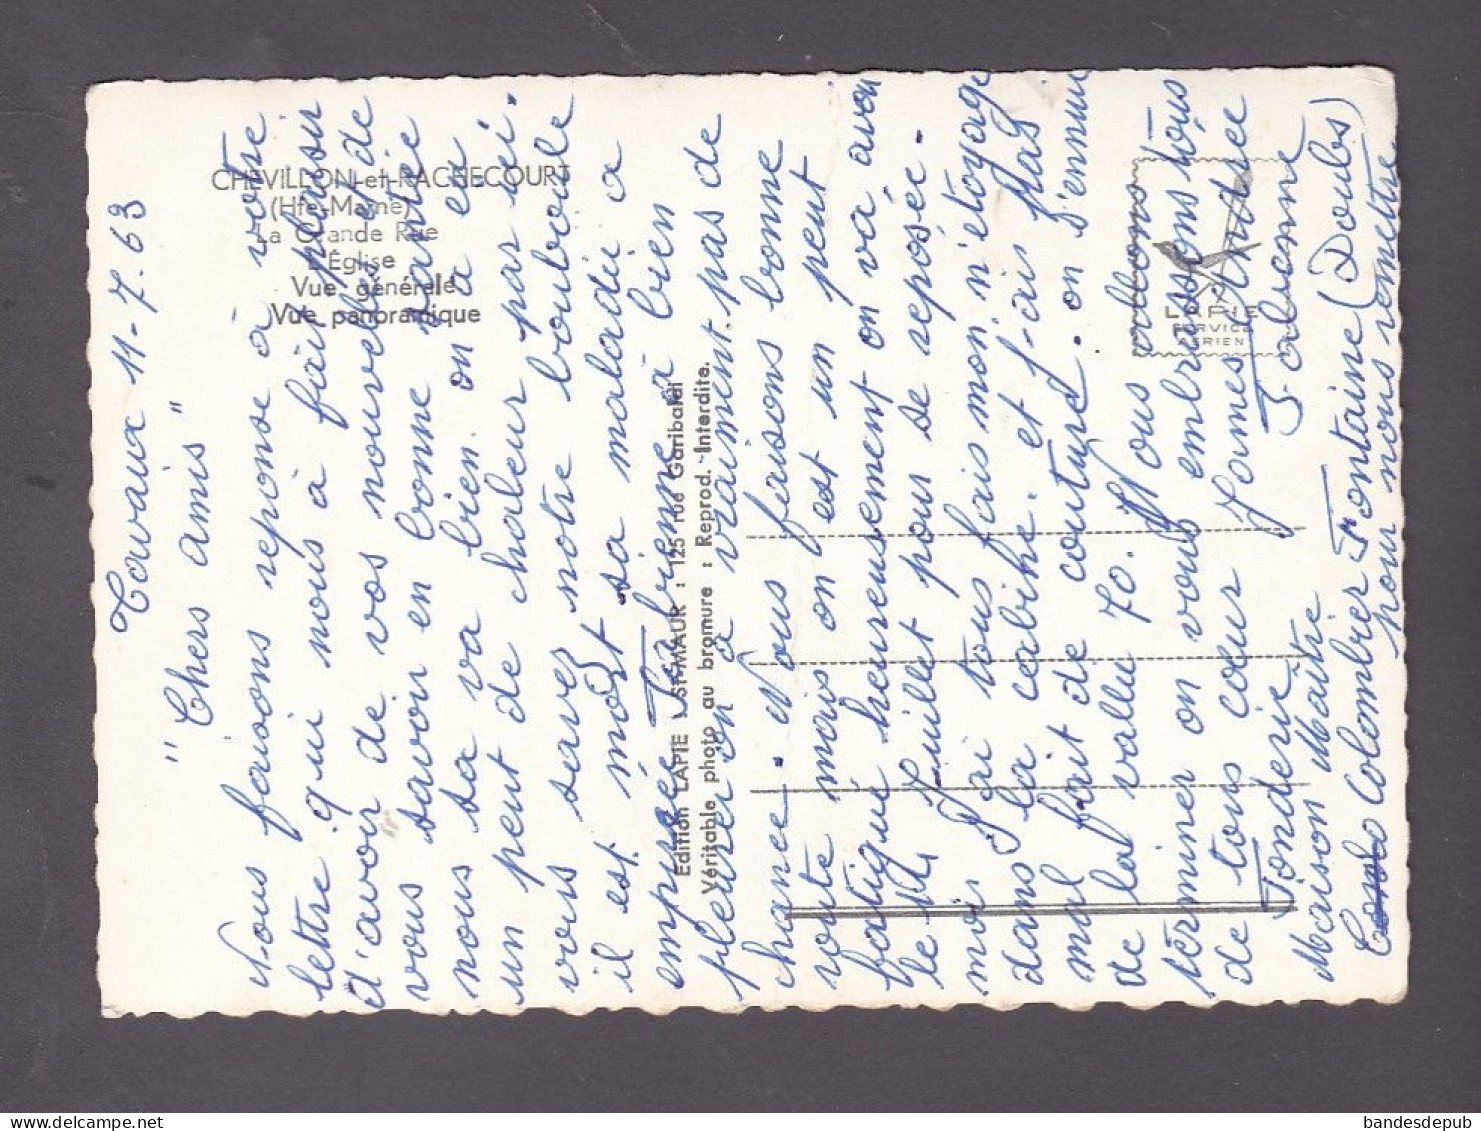 Tavaux 11-7-63
"Chers amis"
Nous faisons reponse à votre
lettre qui nous à fait plaisir
d'avoir de vos nouvelles et de
vous savoir en bonne santée
nous sa va bien. on la eu
un peut de chaleur par ici.
vous savez notre bouboule
il est mort sa maladie a
empirée Fabienne à bien
pleurer on a vraiment pas de
chance. Nous faisons bonne
route mais on est un peut
fatigué heureusement on va avoir
le 14 Juillet pour se reposée.
moi J'ai tous fais mon n'etoyage
dans la cabine. et J-ais plas
mal fait de couture. on s'ennui
de la vallu 70. Nous allons
términer on vous embrassons tous
de tous cœur James Andrée
Fabienne
Fonderie
Maison Maitre
Colombier Fontaine (Doubs)
pour nous remettre
CHEVILLON-et-RACHECOURT
(Hte-Marne)
La Grande Rue
L'Église
Vue générale
Vue panoramique
Edition LAPIE - ST-MAUR : 125 rue Garibaldi
Véritable photo au bromure : Reprod. Interdite.
LAPIE
SERVICE
AERIEN
bandesdepub